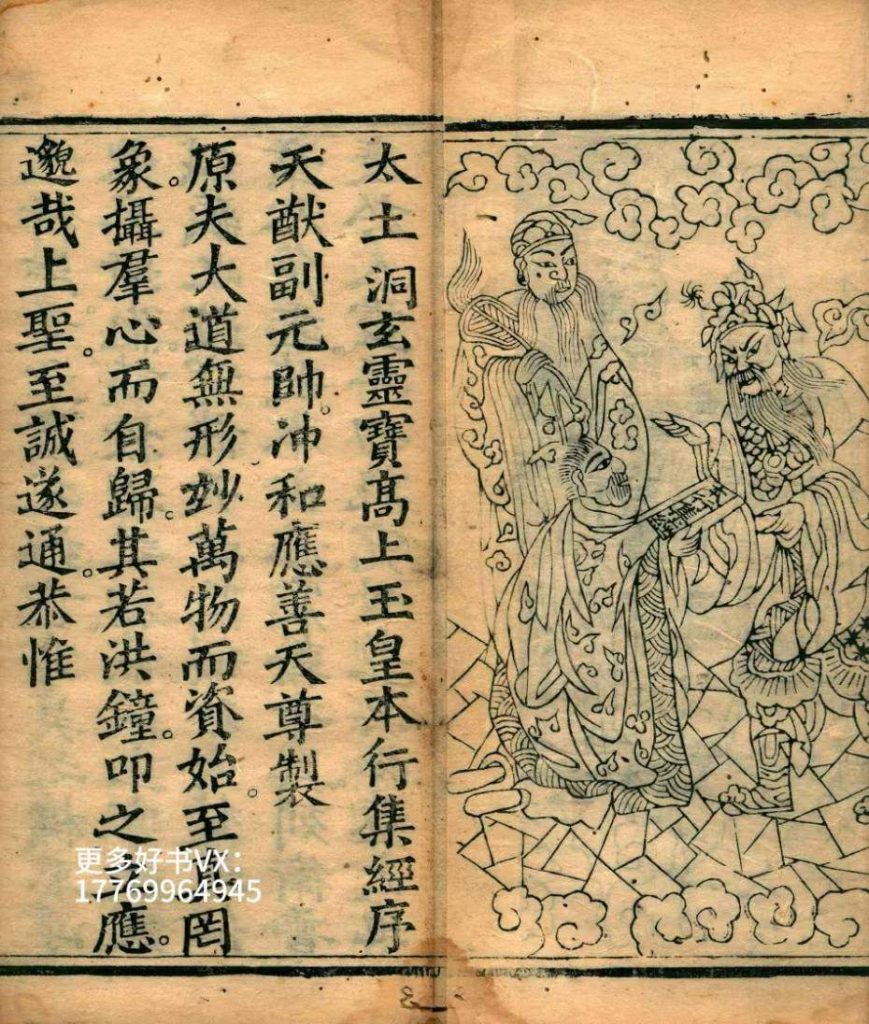 本行集
太土洞玄靈寶高上玉皇本行集經序
天猷副元帥。冲和應善天尊製。
原夫大道無形。妙萬物而資始。至罔
象。攝羣心而自歸。其若洪鐘。叩之應。
邈哉上聖。至誠遂通。恭惟
更多好书VX：
17769964945